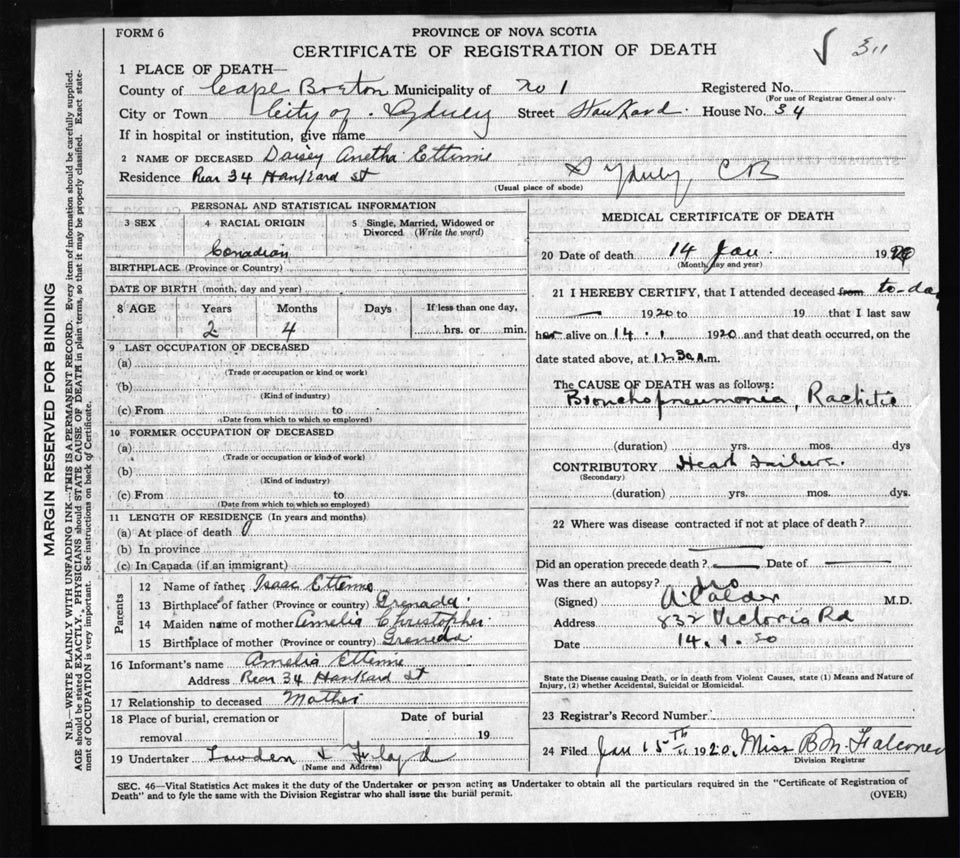 FORM 6
PROVINCE OF NOVA SCOTIA
CERTIFICATE OF REGISTRATION OF DEATH
1 PLACE OF DEATH—
County of Cape Breton Municipality of No 1 Registered No.
(For use of Registrar General only.
City or Town City of Sydney Street Hankard House No. 34
If in hospital or institution, give name
2 NAME OF DECEASED Daisey Anetha Ettinne
Residence Rear 34 Hankard St Sydney CB
(Usual place of abode)
PERSONAL AND STATISTICAL INFORMATION
3 SEX 4 RACIAL ORIGIN 5 Single, Married, Widowed or Divorced (Write the word)
Canadian
BIRTHPLACE (Province or Country)
DATE OF BIRTH (month, day and year)
8 AGE Years Months Days If less than one day,
2 4 hrs. or min.
9 LAST OCCUPATION OF DECEASED
(a)
(Trade or occupation or kind or work)
(b)
(Kind of industry)
(c) From to
(Date from which to which so employed)
10 FORMER OCCUPATION OF DECEASED
(a)
(Trade or occupation or kind of work)
(b)
(Kind of industry)
(c) From to
(Date from which to which so employed)
11 LENGTH OF RESIDENCE (In years and months)
(a) At place of death
(b) In province
(c) In Canada (if an immigrant)
Parents
12 Name of father, Isaac Ettinne
13 Birthplace of father (Province or country) Grenada
14 Maiden name of mother Amelia Christopher
15 Birthplace of mother (Province or country) Grenada
16 Informant's name Amelia Ettinne
Address Rear 34 Hankard St
17 Relationship to deceased Mother
18 Place of burial, cremation or removal Date of burial 19
19 Undertaker Lowden &
(Name and Address)
MEDICAL CERTIFICATE OF DEATH
20 Date of death 14 Jan. 1920
(Month, day and year)
21 I HEREBY CERTIFY, that I attended deceased from to-day
1920 to 19 that I last saw
her alive on 14.1 1920 and that death occurred, on the
date stated above, at 12.30 a.m.
The CAUSE OF DEATH was as follows:
Bronchopneumonia, Rachitis
(duration) yrs. mos. dys
CONTRIBUTORY Heart Failure.
(Secondary)
(duration) yrs. mos. dys.
22 Where was disease contracted if not at place of death?
Did an operation precede death? Date of
Was there an autopsy? No
(Signed) A Calder M.D.
Address 832 Victoria Rd
Date 14.1.20
State the Disease causing Death, or in death from Violent Causes, state (1) Means and Nature of
Injury, (2) whether Accidental, Suicidal or Homicidal.
23 Registrar's Record Number
24 Filed Jan 15th 1920, Miss B M Falconer
Division Registrar
SEC. 46—Vital Statistics Act makes it the duty of the Undertaker or person acting as Undertaker to obtain all the particulars required in the "Certificate of Registration of
Death" and to fyle the same with the Division Registrar who shall issue the burial permit.
(OVER)
MARGIN RESERVED FOR BINDING
N.B.—WRITE PLAINLY WITH UNFADING INK—THIS IS A PERMANENT RECORD. Every item of information should be carefully supplied.
AGE should be stated EXACTLY. PHYSICIANS should STATE CAUSE OF DEATH in plain terms, so that it may be properly classified. Exact state-
ment of OCCUPATION is very important. See instructions on back of Certificate.